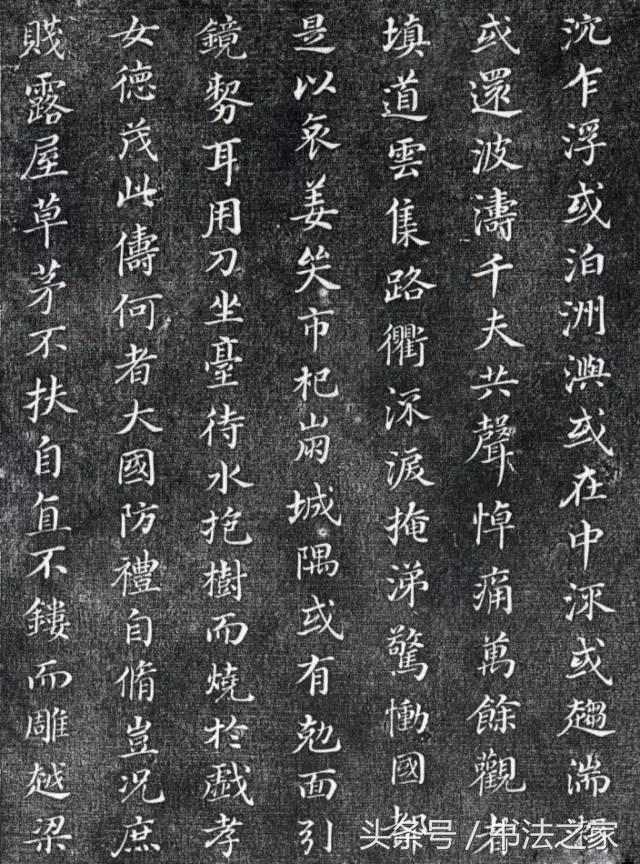 沉乍浮或泊洲嶼或在中流或趨湍瀨
或還波濤千夫共聲悼痛萬餘觀者
填道雲集路衢流淚掩涕驚慟國都
是以哀姜哭市杞崩城隅或有剋面引
鏡剺耳用刀坐臺待水抱樹而燒於戲孝
女德茂此儔何者大國防禮自脩豈況庶
賤露屋草茅不扶自直不鏤而雕越梁
头条号 / 书法之家